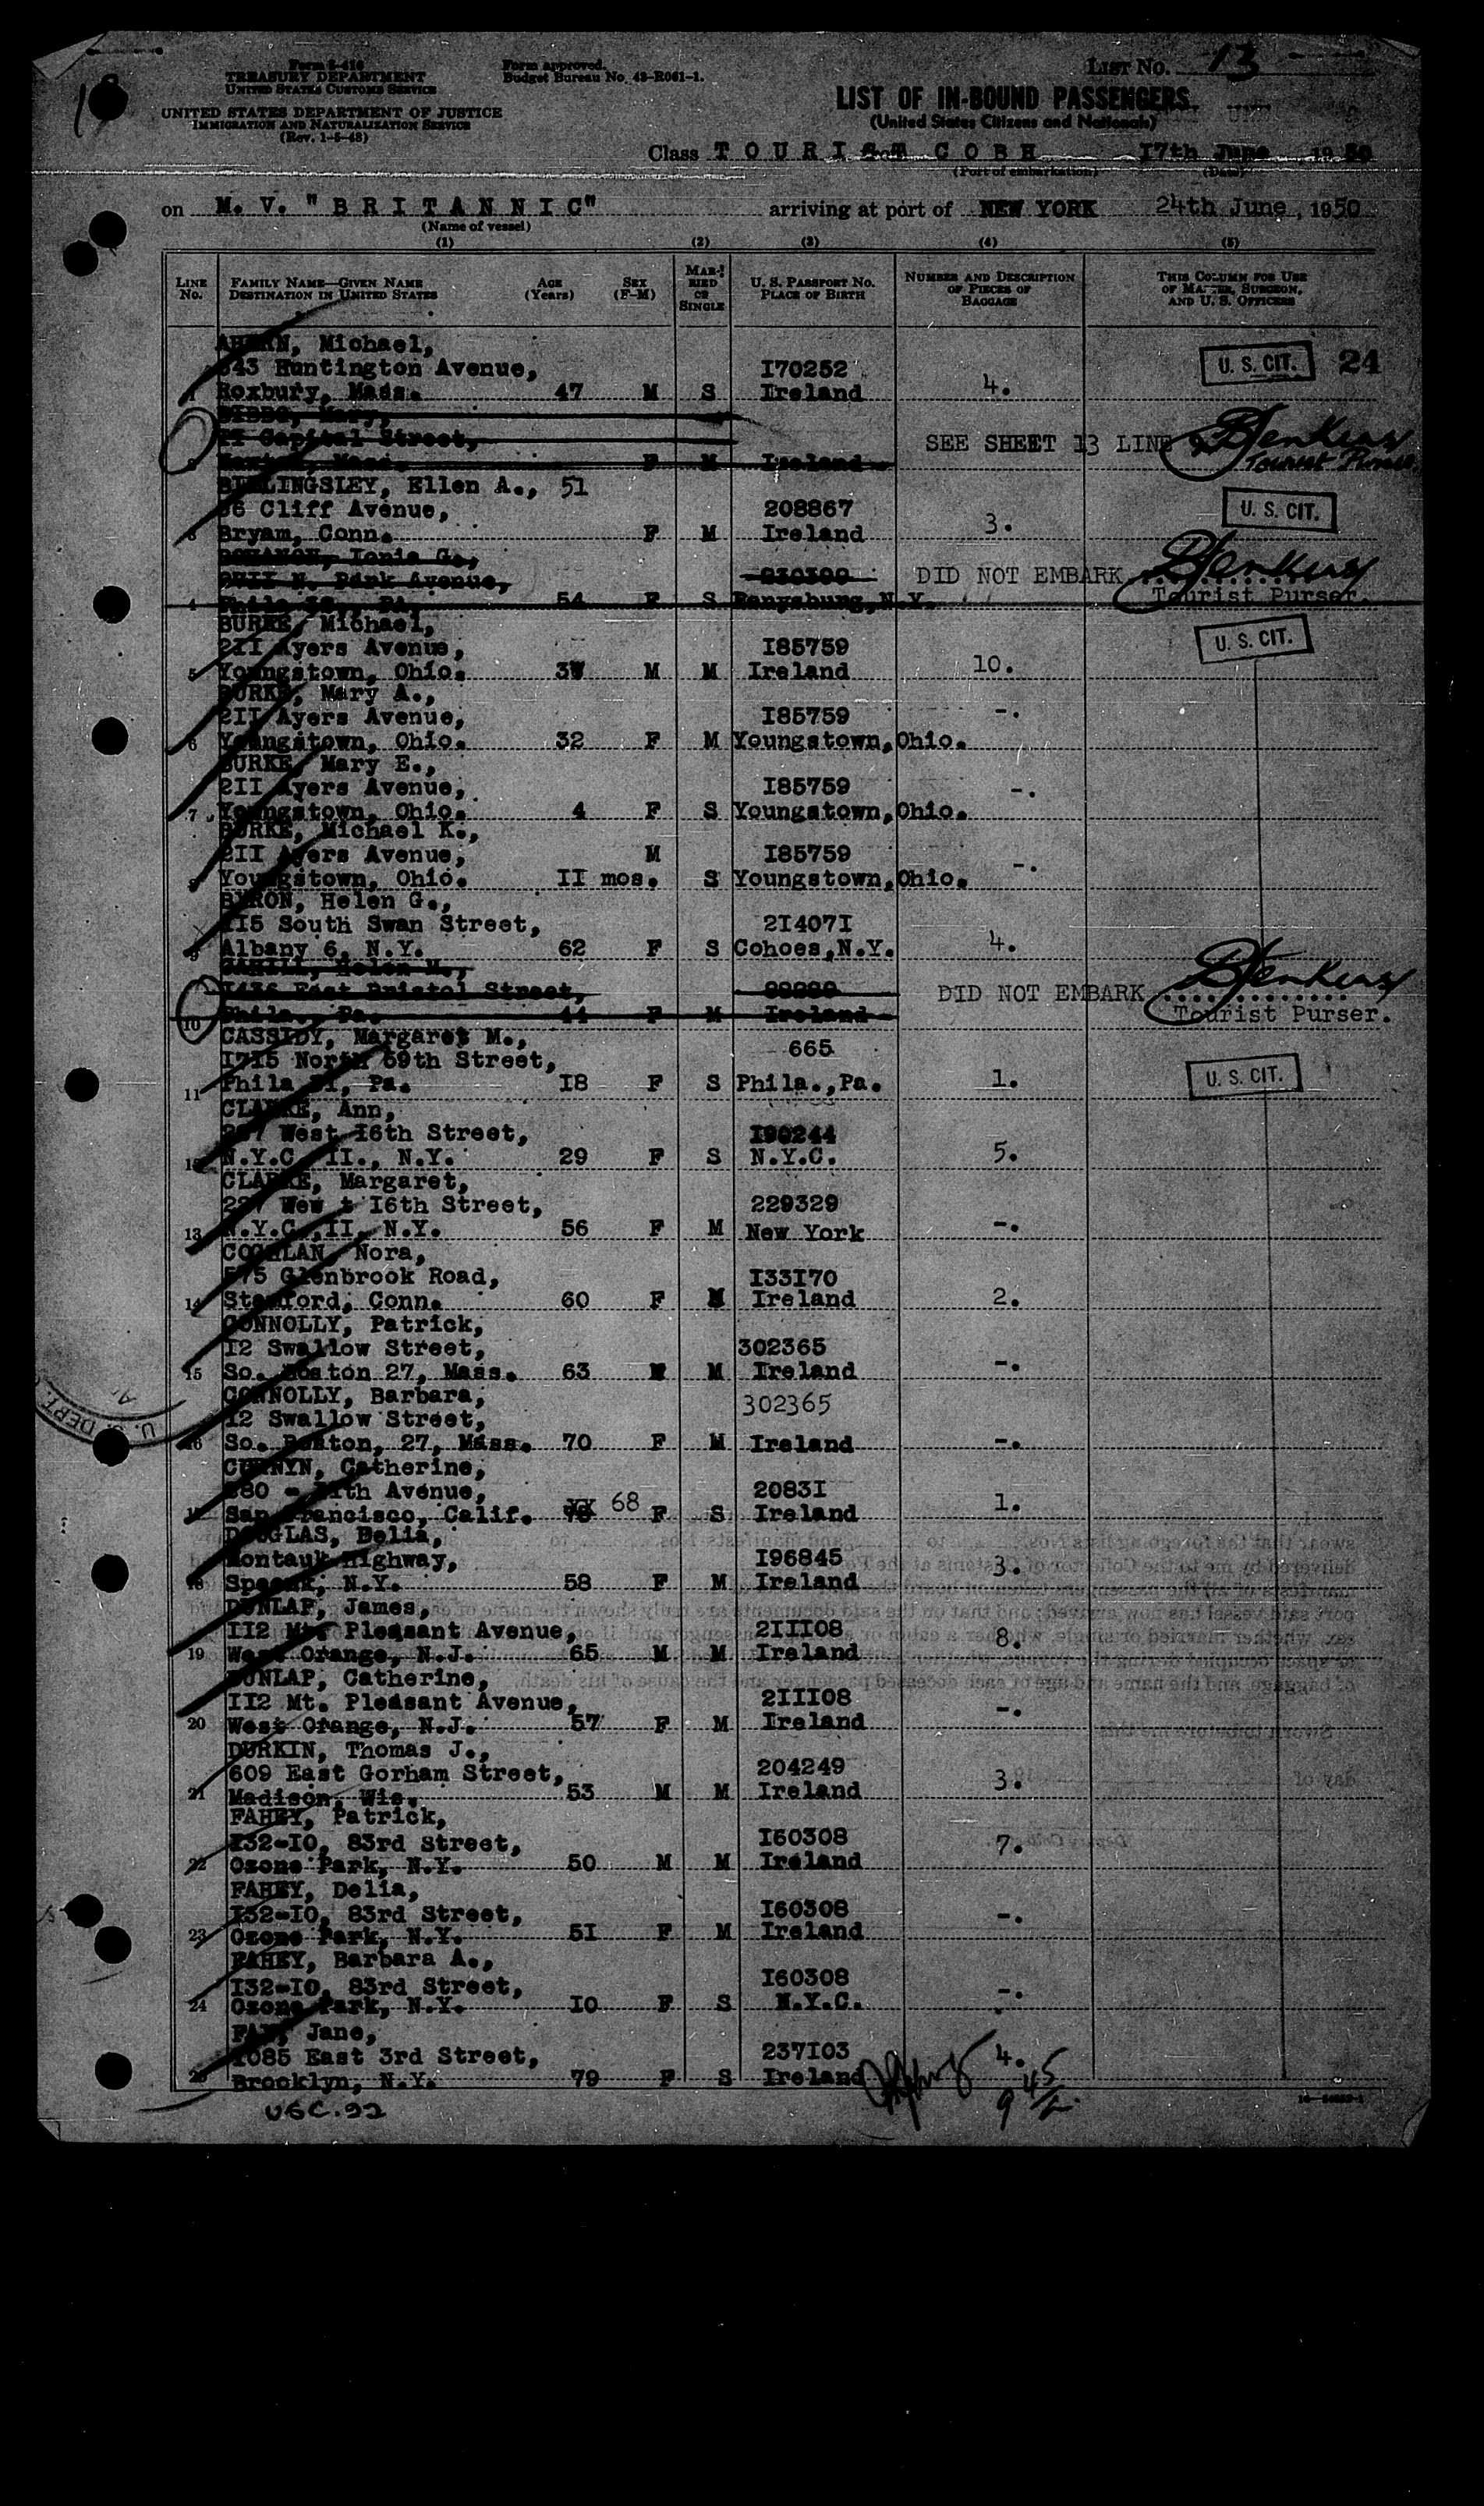 Form I-416
TREASURY DEPARTMENT
UNITED STATES CUSTOMS SERVICE
UNITED STATES DEPARTMENT OF JUSTICE
IMMIGRATION AND NATURALIZATION SERVICE
(Rev. 1-5-48)
Form approved.
Budget Bureau No. 43-R061-1.
LIST NO. 13
LIST OF IN-BOUND PASSENGERS
(United States Citizens and Nationals)
Class TOURIST from COBH 17th June, 1950
(Port of embarkation) (Date)
on M. V. "BRITANNIC" arriving at port of NEW YORK 24th June, 1950
(Name of vessel)
(1) (2) (3) (4) (5)
LINE No. FAMILY NAME—GIVEN NAME DESTINATION IN UNITED STATES AGE (Years) SEX (F-M) MARRIED OR SINGLE U. S. PASSPORT NO. PLACE OF BIRTH NUMBER AND DESCRIPTION OF PIECES OF BAGGAGE THIS COLUMN FOR USE OF MASTER, SURGEON, AND U. S. OFFICERS
AHERN, Michael,
843 Huntington Avenue, I70252 U. S. CIT. 24
1 Roxbury, Mass. 47 M S Ireland 4.
Mary,
11 Capital Street, SEE SHEET 13 LINE
Mass. F M Ireland Tourist Purser.
BILLINGSLEY, Ellen A., 51
36 Cliff Avenue, 208867 U. S. CIT.
3 Bryam, Conn. F M Ireland 3.
Tonie G.,
Avenue, DID NOT EMBARK
4 54 F S N.Y. Tourist Purser.
BURKE, Michael,
2II Ayers Avenue, I85759 U. S. CIT.
5 Youngstown, Ohio. 37 M M Ireland 10.
BURKE, Mary A.,
2II Ayers Avenue, I85759 -.
6 Youngstown, Ohio. 32 F M Youngstown, Ohio.
BURKE, Mary E.,
2II Ayers Avenue, I85759 -.
7 Youngstown, Ohio. 4 F S Youngstown, Ohio.
BURKE, Michael K.,
2II Ayers Avenue, M I85759 -.
8 Youngstown, Ohio. II mos. S Youngstown, Ohio.
BYRON, Helen G.,
115 South Swan Street, 2I407I
9 Albany 6, N.Y. 62 F S Cohoes, N.Y. 4.
CAHILL, Helen M.,
I436 East Bristol Street, DID NOT EMBARK
10 Phila., Pa. 44 F M Ireland Tourist Purser.
CASSIDY, Margaret M.,
I715 North 59th Street, 665 U. S. CIT.
11 Phila 31, Pa. I8 F S Phila., Pa. 1.
CLARKE, Ann,
227 West I6th Street, I90244
12 N.Y.C. II., N.Y. 29 F S N.Y.C. 5.
CLARKE, Margaret,
227 Wes t I6th Street, 229329
13 N.Y.C., II, N.Y. 56 F M New York -.
COGHLAN, Nora,
575 Glenbrook Road, I33I70
14 Stamford, Conn. 60 F M Ireland 2.
CONNOLLY, Patrick,
I2 Swallow Street, 302365
15 So. Boston 27, Mass. 63 M M Ireland -.
CONNOLLY, Barbara,
I2 Swallow Street, 302365
16 So. Boston, 27, Mass. 70 F M Ireland -.
CURNYN, Catherine,
Avenue, 2083I
17 San Francisco, Calif. 68 F S Ireland 1.
DOUGLAS, Delia,
Montauk Highway, I96845
18 Speonk, N.Y. 58 F M Ireland 3.
DUNLAP, James,
II2 Mt. Pleasant Avenue, 2III08
19 West Orange, N.J. 65 M M Ireland 8.
DUNLAP, Catherine,
II2 Mt. Pleasant Avenue, 2III08
20 West Orange, N.J. 57 F M Ireland -.
DURKIN, Thomas J.,
609 East Gorham Street, 204249
21 Madison, Wis. 53 M M Ireland 3.
FAHEY, Patrick,
I32-I0, 83rd Street, I60308
22 Ozone Park, N.Y. 50 M M Ireland 7.
FAHEY, Delia,
I32-I0, 83rd Street, I60308
23 Ozone Park, N.Y. 5I F M Ireland -.
FAHEY, Barbara A.,
I32-I0, 83rd Street, I60308
24 Ozone Park, N.Y. I0 F S N.Y.C. -.
FAY, Jane,
I085 East 3rd Street, 237I03
25 Brooklyn, N.Y. 79 F S Ireland 4.
USC. 22